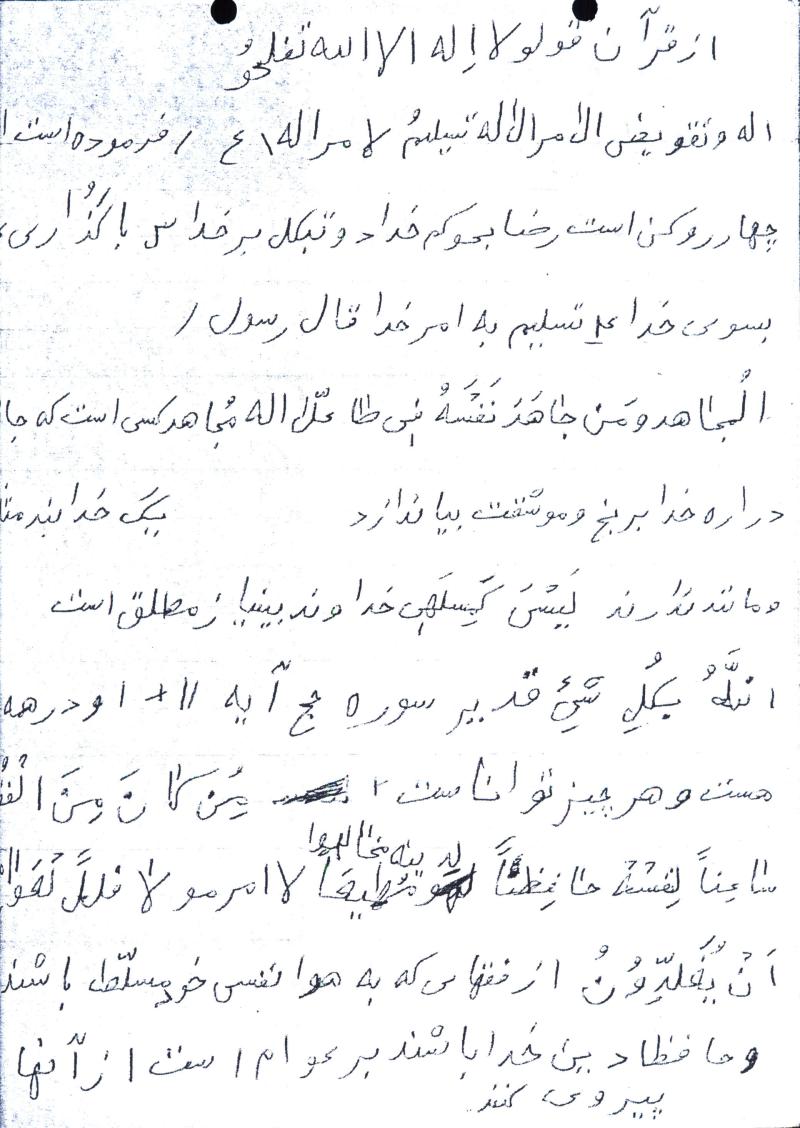 از قرآن قولو لا اِله الا الله تفلحوُ
اله وتقو یغنی الاَمر الاَله تسیلیمُ لا مراله ۱ ع / فرموده است
چهار روکن است رضا بحوکم خداد و تبکل بر خدا س باگذُاری
بسوی خدا ع تسلیم به امر خدا قال رسول /
الُمجاهد ومَن جاهَدَ نَفسَهُ فی طا عتلا اله مُجاهد کسی است که جا
دراره خدا برنج وموشقت بیاندازد یگ خدا بند مثا
ومانند ندارند لَیسْسَ کَمِسلَهِی خداوند بینیاز مطلق است
انَلَّهُ بکُلِ شَیِئ قدیر سوره حج آیه ۱۱+ او در همه
هست و هر چیز توانا ست ۲ مِن کانَ مِنَ الْفُ
سا عِناً لِنفسْهُ حا فِظناً لدینه مخالیوا لا امر مو لا فللً لعَوا
اَنْ یُقَلّدِوُنُ از فقها س که به هوا نفسی خود مسلّط باشند
وحا فظا دین خُدا باشند بر عوام است از آنها
پیروی کنند